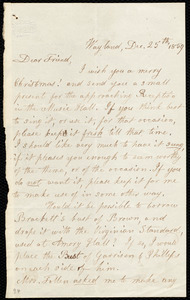 Wayland, Dec. 25th 1859
Dear Friend,
I wish you a merry
Christmas! and send you a small
present for the approaching
in the Music Hall. If you think best
to sing it, or a it, for that occasion,
please keep it fresh till that time.
I should like very much to have it sung,
if it pleases you enough to sum worth
of the theme, or of the occasion. If you
do not want it please keep it for me
to make use of in some other way.
Would it be possible to borrow
Brackett's bust of Brown, and
drape it with the Virginian Standard
used at Tremont Hall? If so, I would
place the Bust of Garrison & Phillips
on each side of him.
Mrs. Follen asked me to make any